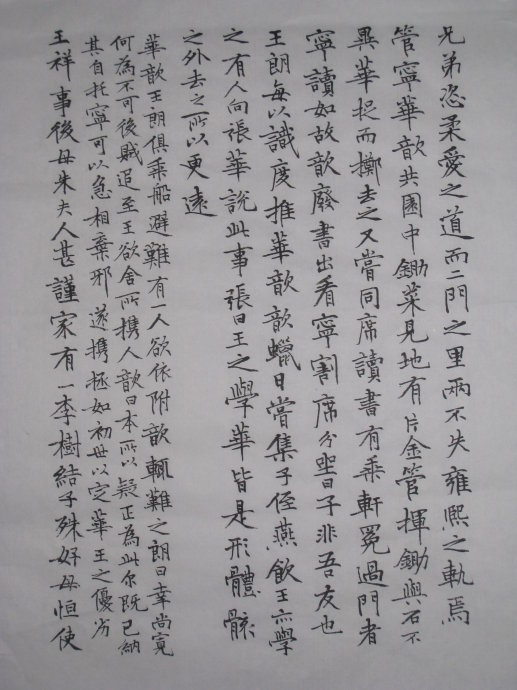 兄弟恣柔愛之道而二門之里兩不失雍熙之軌焉
管寧華歆共園中鋤菜見地有片金管揮鋤與石不
異華捉而擲去之又嘗同席讀書有乘軒冕過門者
寧讀如故歆廢書出看寧割席分坐曰子非吾友也
王朗每以識度推華歆歆蠟日嘗集子侄燕飲王亦學
之有人向張華說此事張曰王之學華皆是形體骸
之外去之所以更遠
華歆王朗俱乘船避難有一人欲依附歆輒難之朗曰幸尚寬
何為不可後賊追至王欲舍所攜人歆曰本所以疑正為此尔既已納
其自托寧可以急相棄邪遂攜拯如初世以定華王之優劣
王祥事後母朱夫人甚謹家有一李樹結子殊好母恒使